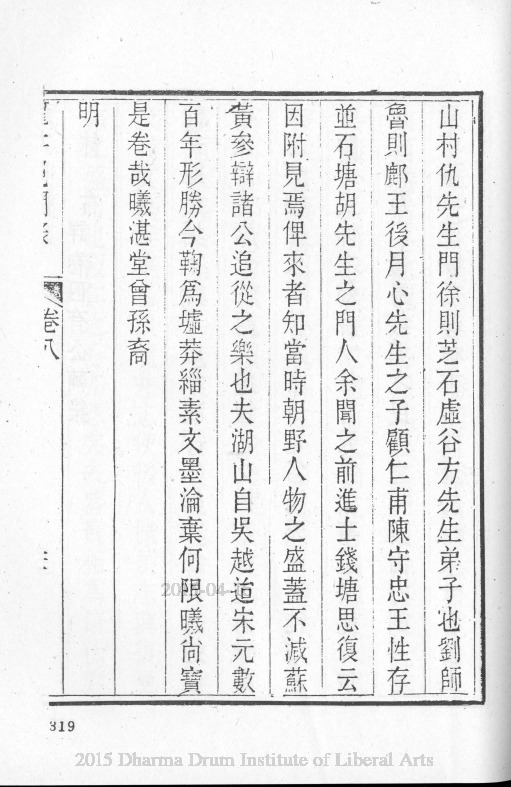 山村仇先生門徐則芝石虛谷方先生弟子也劉師
魯則鄜王後月心先生之子顧仁甫陳守忠王性存
並石塘胡先生之門人余聞之前進士錢塘思復云
因附見焉俾來者知當時朝野人物之盛蓋不減蘇
黃參辯諸公追從之樂也夫湖山自吳越迨宋元數
百年形勝今鞠為墟莽緇素文墨淪棄何限曦尙寶
是卷哉曦湛堂曾孫裔
明
卷八
319
2015 Dharma Drum Institute of Liberal Arts